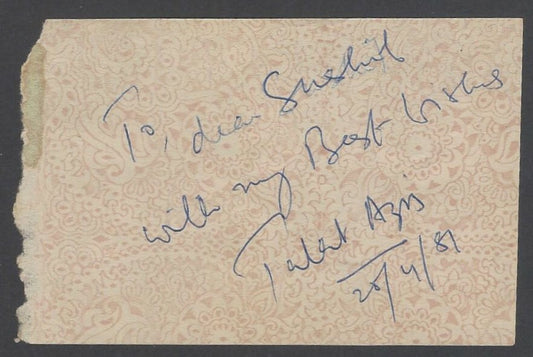 To, dear Sushil
with my Best Wishes
Talat Aziz
20/4/81